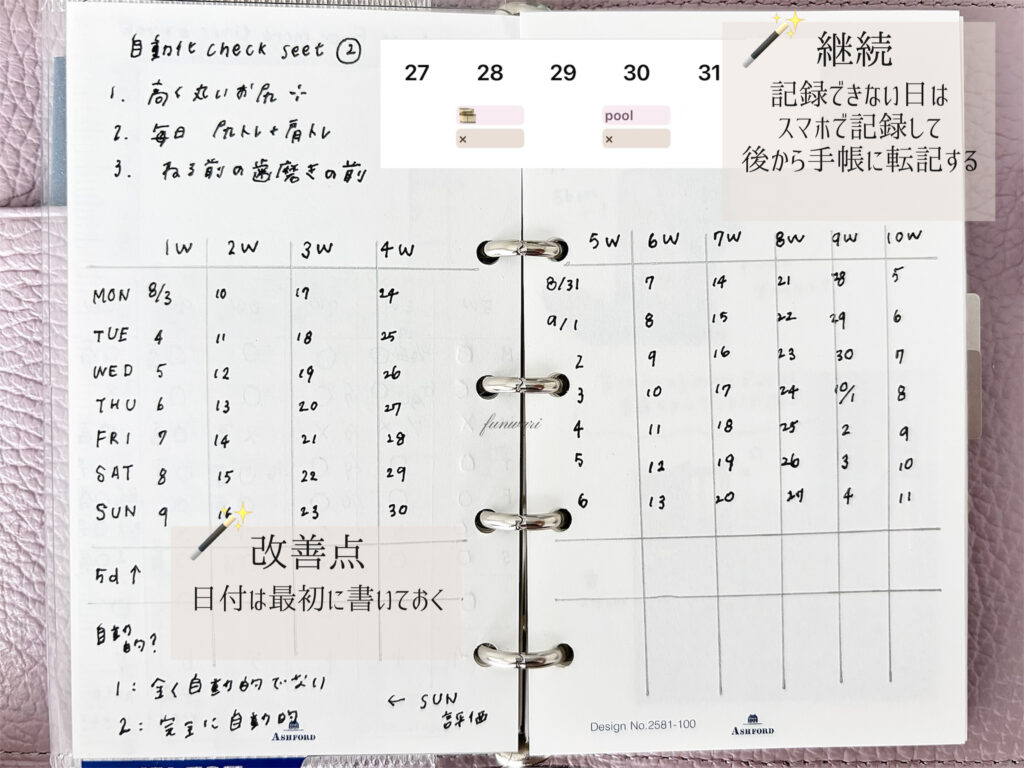 自動化 check seet ②
1. 高く丸いお尻
2. 毎日 尻トレ+肩トレ
3. ねる前の歯磨きの前
27 28 29 30 31
pool
× ×
継続
記録できない日は
スマホで記録して
後から手帳に転記する
1W 2W 3W 4W
MON 8/3 10 17 24
TUE 4 11 18 25
WED 5 12 19 26
THU 6 13 20 27
FRI 7 14 21 28
SAT 8 15 22 29
SUN 9 16 23 30
5d ↑
自動的?
1: 全く自動的でない
2: 完全に自動的
← SUN
評価
ASHFORD
改善点
日付は最初に書いておく
funwari
5W 6W 7W 8W 9W 10W
8/31 7 14 21 28 5
9/1 8 15 22 29 6
2 9 16 23 30 7
3 10 17 24 10/1 8
4 11 18 25 2 9
5 12 19 26 3 10
6 13 20 27 4 11
Design No.2581-100
ASHFORD